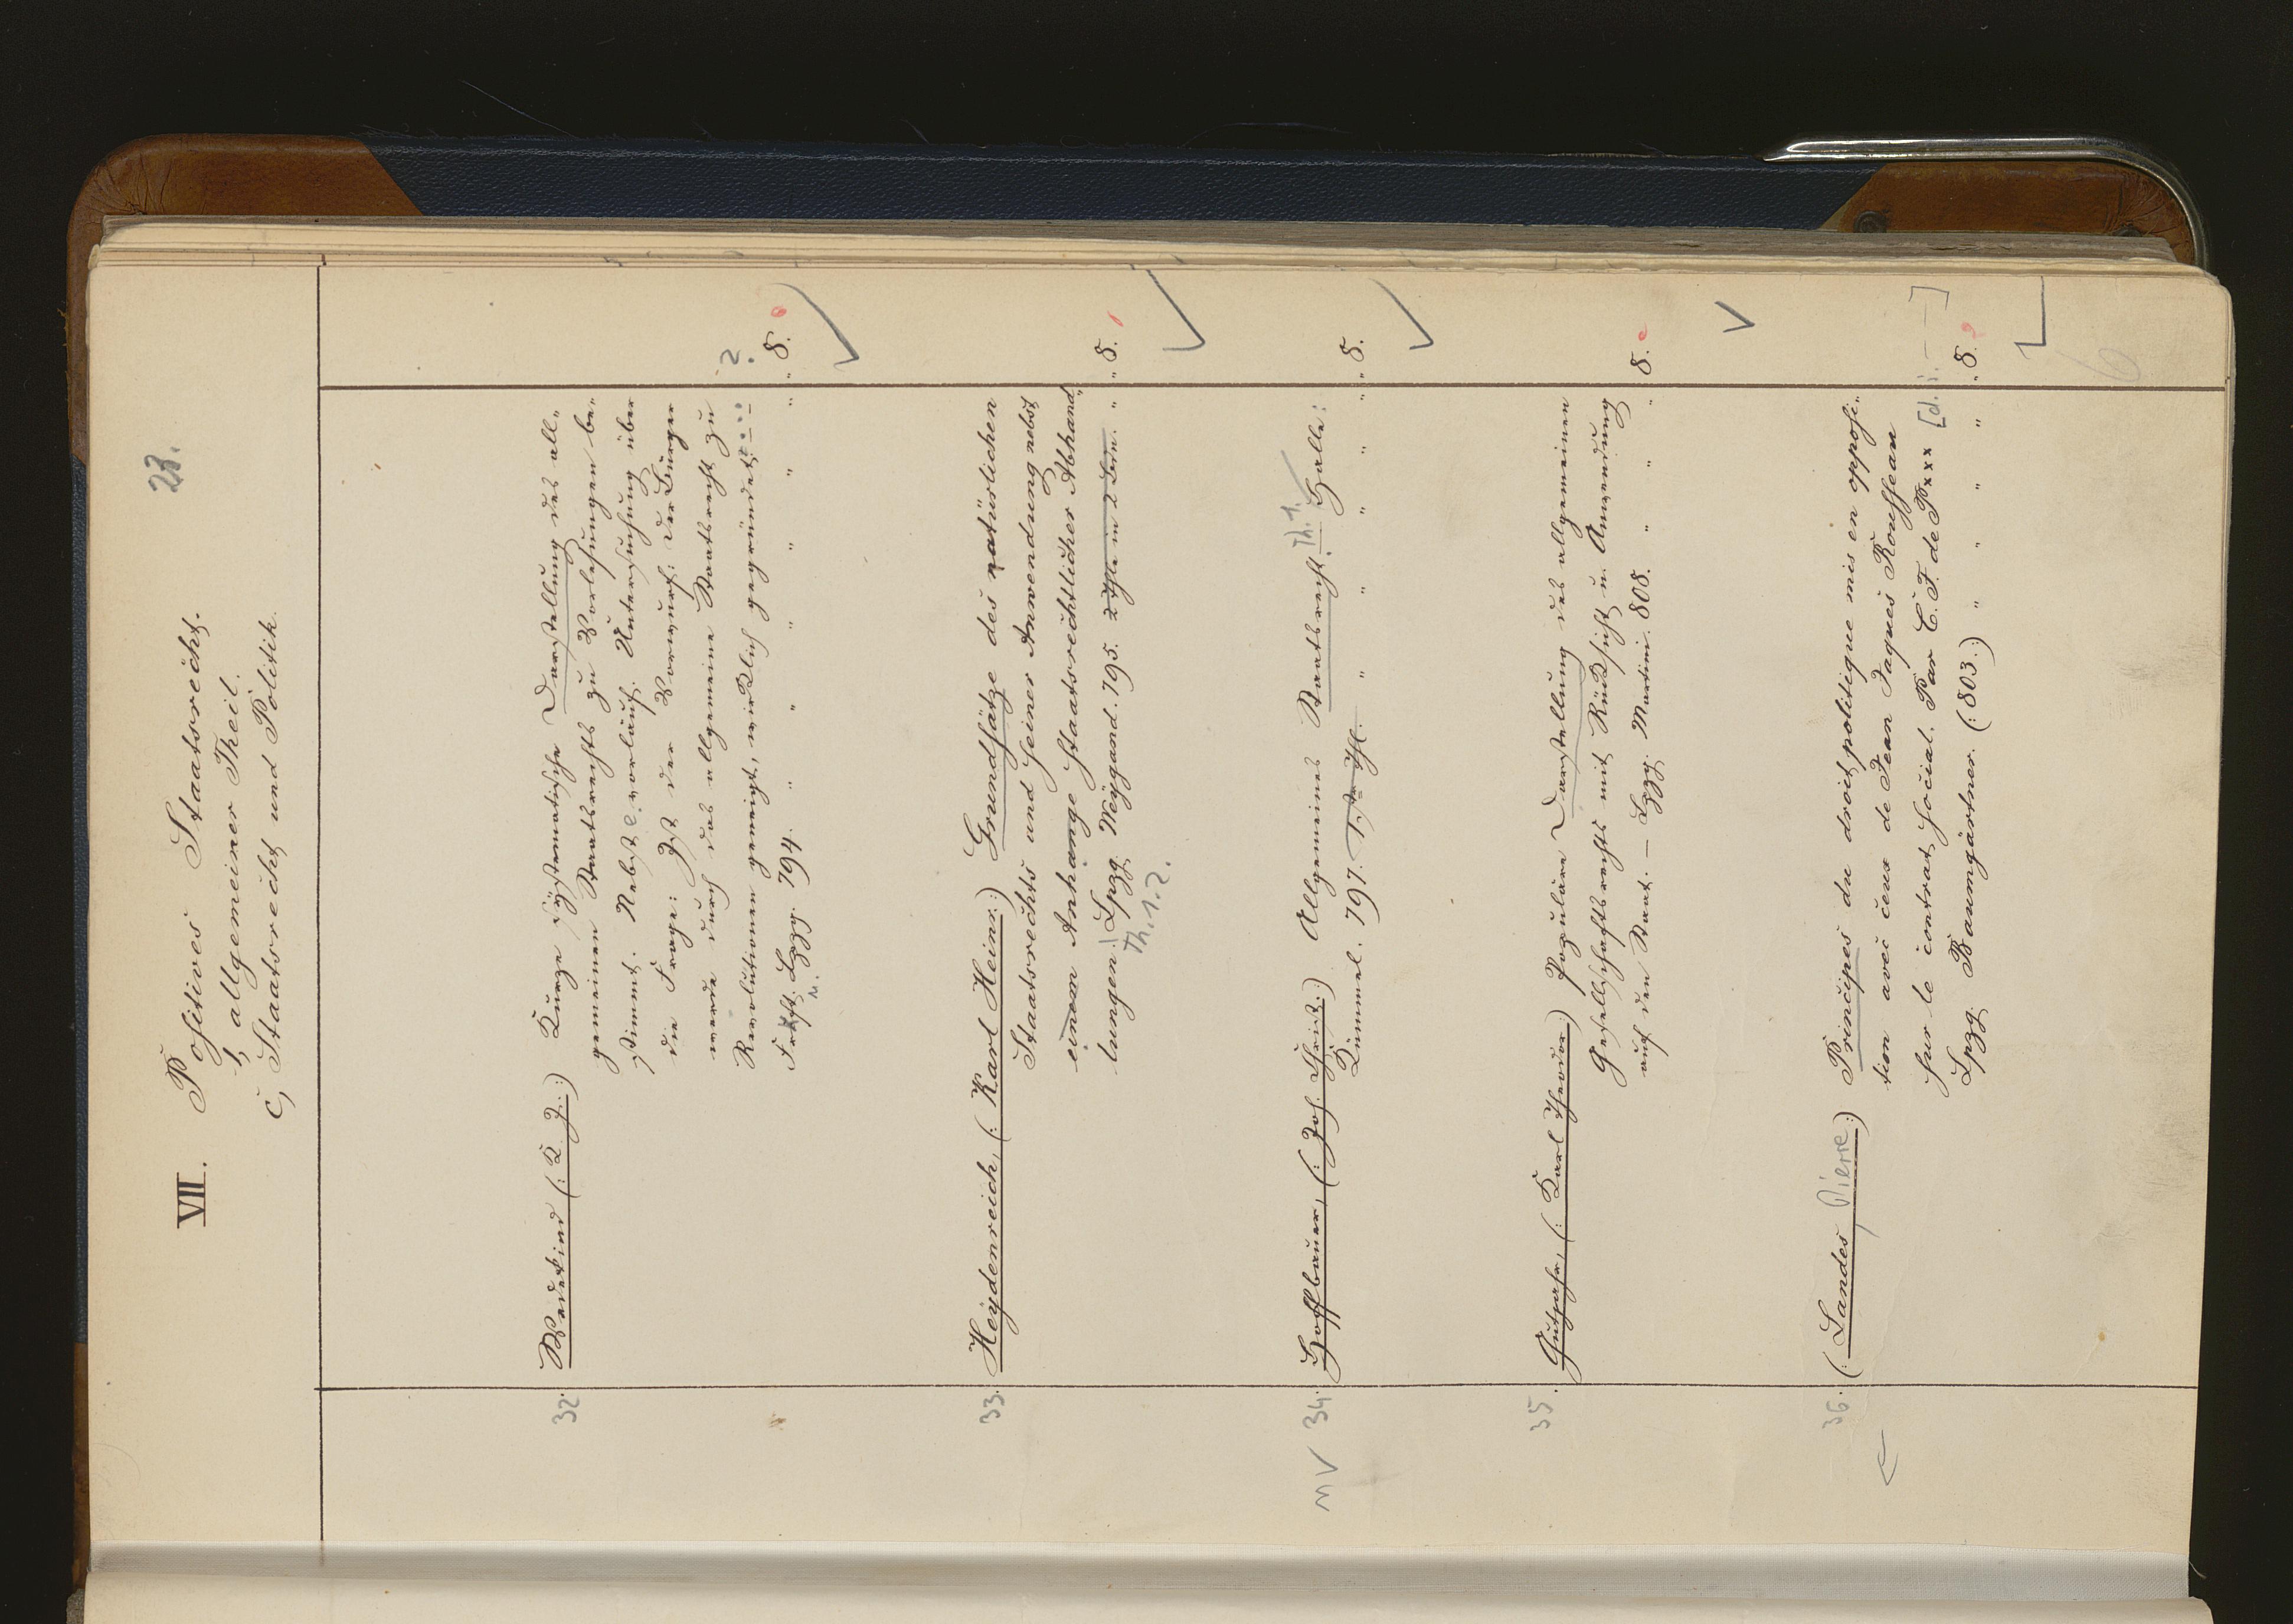 23.
VII. Positives Staatsrecht.
1, allgemeiner Theil.
c, Staatsrecht und Politik.
32. Wedekind (: K. J. :) Kurze systematische Darstellung des all„
gemeinen Staatsrechts zu Vorlesungen be„
stimmt. Nebst e. vorläuf. Untersuchung über
die Frage: Ist der Vorwurf: der Bürger
werde durch das allgemeine Staatsrecht zu
Revolutionen geneigt, wirklich gegründet? 2.
Frkft. u. Lpzg. 794. " " " " " " 8.
33. Heydenreich, (: Karl Heinr. :) Grundsätze des natürlichen
Staatsrechts und seiner Anwendung nebst
einem Anhange staatsrechtlicher Abhand„
lungen. Lpzg. Weygand. 795. 2 Thle in 2 Bdn. " " 8.
Th. 1. 2.
MV 34. Hoffbauer, (: Joh. Christ. :) Allgemeines Staatsrecht. Th. 1. Halle:
Kümmel. 797. 1ster Thl. " " " " " 8.
35. Gutjahr, (: Karl Theodor :) Populäre Darstellung des allgemeinen
Gesellschaftsrechts mit Rücksicht u. Anwendung
auf den Staat. — Lpzg. Martini. 808. " " " 8.
36. (: Landes, Pierre :) Principes du droit politique mis en opposi„
tion avec ceux de Jean Jaques Rousseau
sur le contrat social. Par C. F. de P*** [d. i. — ]
Lpzg. Baumgärtner. (: 803. :) " " " " 8.
6